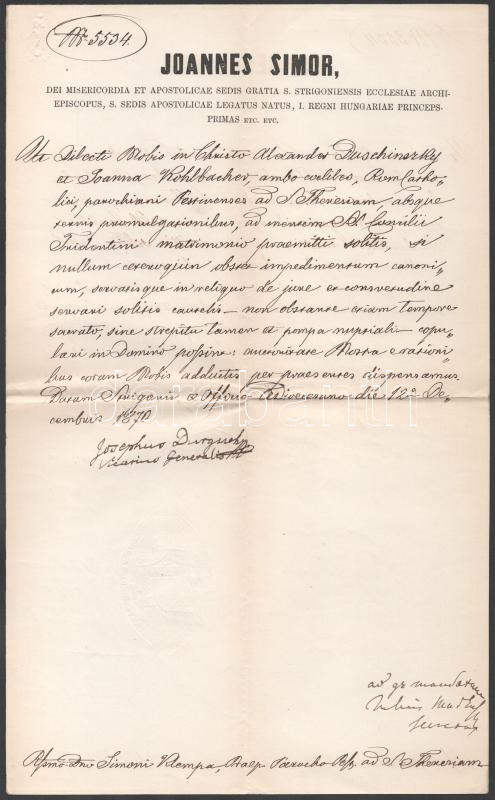 Nr 5534.
JOANNES SIMOR,
DEI MISERICORDIA ET APOSTOLICAE SEDIS GRATIA S. STRIGONIENSIS ECCLESIAE ARCHI-
EPISCOPUS, S. SEDIS APOSTOLICAE LEGATUS NATUS, I. REGNI HUNGARIAE PRINCEPS-
PRIMAS ETC. ETC.
Ut Dilecti Nobis in Christo Alexander Duschinszky
et Joanna Kohlbacher, ambo coelibes, Rom Catho-
lici, parochiani Pestinenses ad S. Theresiam, absque
ternis promulgationibus, ad mentem SS. Concilii
Tridentini matrimonio praemitti solitis, si
nullum ceteroquin obstet impedimentum canoni-
cum, servatisque in reliquo de jure et consvetudine
servari solitis cautelis – non obstante etiam tempore
sacrato, sine strepitu tamen et pompa nuptiali – copu-
lari in Domino possint: auctoritate Nostra e rationi-
bus coram Nobis adductis per praesentes dispensamus.
Datum Strigonii e Officio Dioecesano die 12a De-
cembris 1870
Josephus
Vicarius Generalis
ad gr mandatum
Julius
Secretar
Simoni Klempa, Parocho ad S. Theresiam
darabanth